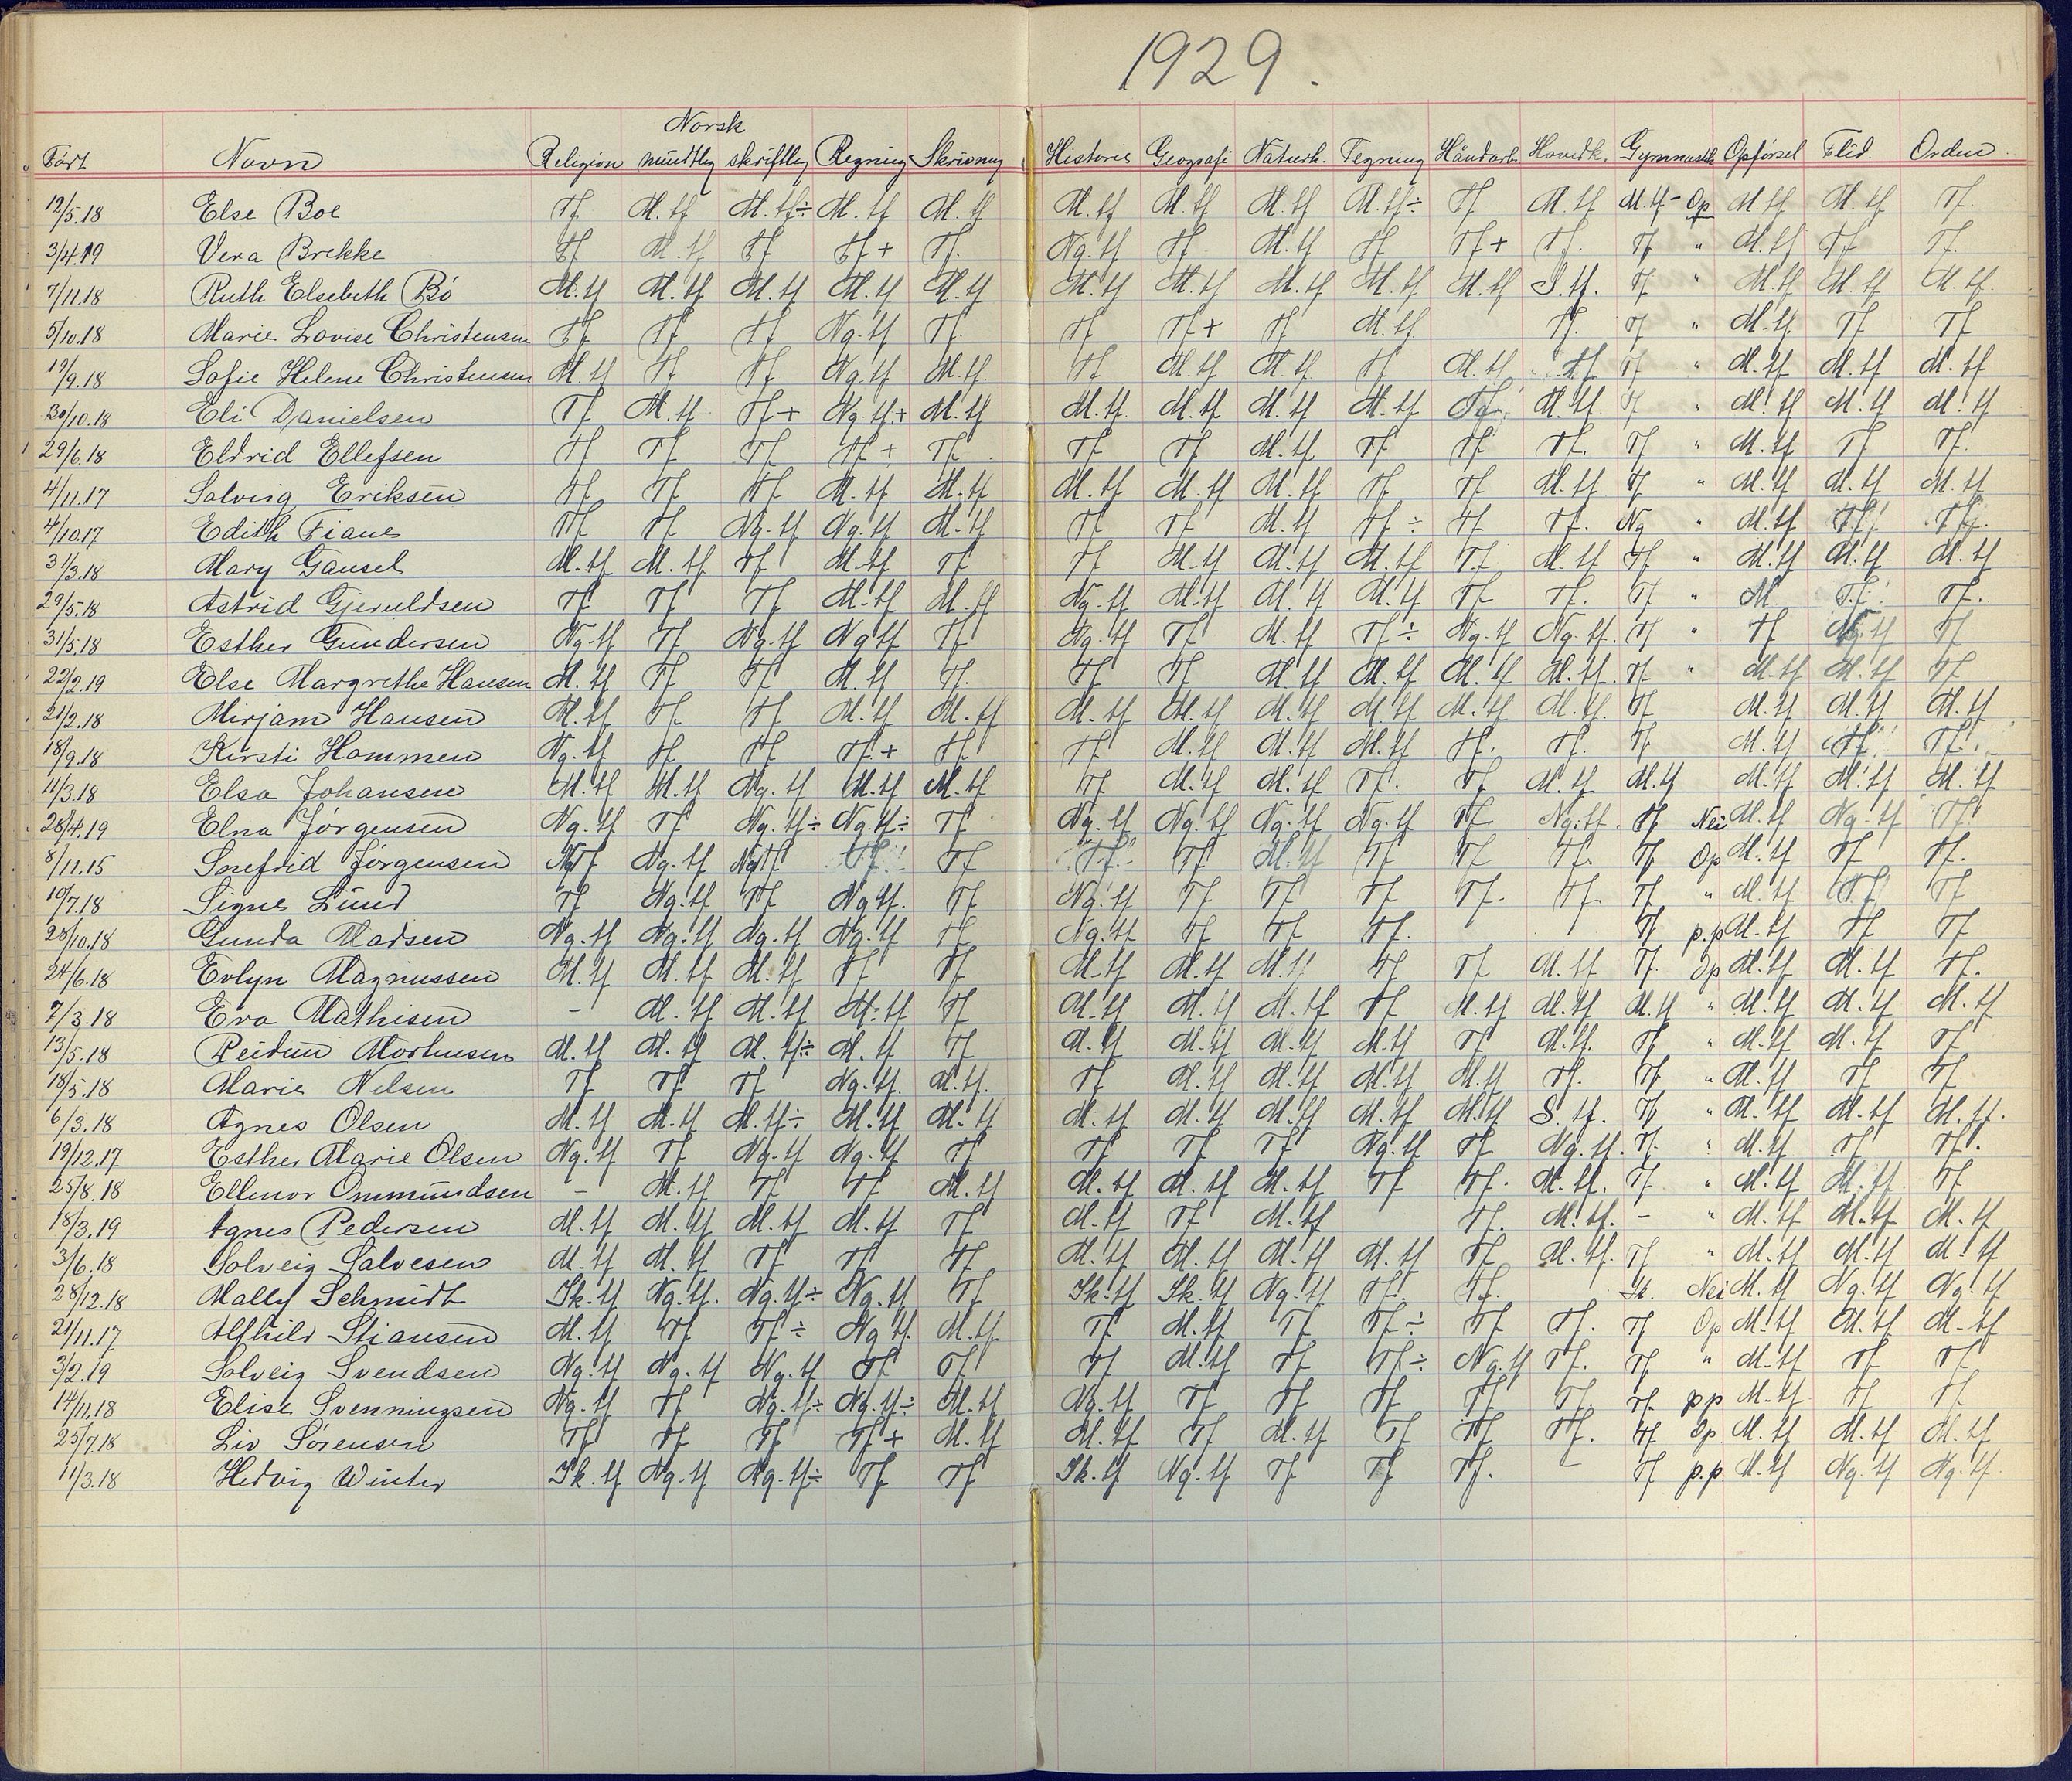 1929.
Norsk
Født Navn Religion mündtlig skriftlig Regning Skrivning Historie Geografi Naturh. Tegning Håndarb. Hovedk. Gymnastik Opførsel Flid. Orden
12/5.18 Else Boe Tf M.tf M.tf÷ M.tf M.tf M.tf M.tf M.tf M.tf÷ Tf M.tf M.tf- Op M.tf M.tf Tf.
3/4.19 Vera Brekke Tf M.tf Tf Tf+ Tf. Ng.tf Tf M.tf Tf Tf+ Tf. Tf " M.tf Tf Tf.
7/11.18 Ruth Elsebeth Bö M.tf M.tf M.tf M.tf M.tf M.tf M.tf M.tf M.tf M.tf S.tf. Tf " M.tf M.tf M.tf.
5/10.18 Marie Lovise Christensen Tf Tf Tf Ng.tf Tf. Tf Tf+ Tf M.tf Tf. Tf " M.tf Tf Tf
19/9.18 Sofie Helene Christensen M.tf Tf Tf Ng.tf M.tf. Tf M.tf M.tf Tf M.tf Tf Tf " M.tf M.tf M.tf
30/10.18 Eli Danielsen Tf M.tf Tf+ Ng.tf+ M.tf M.tf. M.tf M.tf M.tf Tf M.tf. Tf " M.tf M.tf M.tf
29/6.18 Eldrid Ellefsen Tf Tf Tf Tf+ Tf. Tf Tf M.tf Tf Tf Tf. Tf " M.tf Tf Tf.
4/11.17 Solveig Eriksen Tf Tf Tf M.tf M.tf M.tf M.tf M.tf Tf Tf M.tf. Tf " M.tf M.tf M.tf
4/10.17 Edith Fiane Tf Tf Ng.tf Ng.tf M.tf Tf Tf M.tf Tf÷ Tf Tf. Ng " M.tf Tf Tf.
31/3.18 Mary Gausel M.tf M.tf Tf M.tf Tf Tf M.tf M.tf M.tf Tf M.tf Tf " M.tf M.tf M.tf
29/5.18 Astrid Gjeruldsen Tf Tf Tf M.tf M.tf Ng.tf M.tf M.tf M.tf Tf Tf. Tf " M Tf. Tf.
31/5.18 Esther Gundersen Ng.tf Tf Ng.tf Ng.tf Tf Ng.tf Tf M.tf Tf÷ Ng.tf Ng.tf. Tf " Tf Ng.tf Tf
22/2.19 Else Margrethe Hansen M.tf Tf Tf M.tf Tf. Tf Tf M.tf M.tf M.tf M.tf. Tf " M.tf M.tf Tf
21/2.18 Mirjam Hansen M.tf Tf Tf M.tf M.tf M.tf M.tf M.tf M.tf M.tf M.tf. Tf M.tf M.tf M.tf
18/9.18 Kirsti Hommen Ng.tf Tf Tf Tf+ Tf Tf M.tf M.tf M.tf Tf. Tf. Tf. M.tf Tf Tf.
11/3.18 Elsa Johansen M.tf M.tf Ng.tf M.tf M.tf Tf M.tf M.tf Tf. Tf M.tf M.tf M.tf M.tf M.tf
28/4.19 Elna Jørgensen Ng.tf Tf Ng.tf÷ Ng.tf÷ Tf Ng.tf Ng.tf Ng.tf Ng.tf Tf Ng.tf. Tf Nei M.tf Ng.tf Tf
8/11.15 Snefrid Jørgensen NgTf Ng.tf NgTf Tf Tf Tf Tf M.tf Tf Tf Tf. Tf Op M.tf Tf Tf.
10/7.18 Signe Lünd Tf Ng.tf Tf Ng.tf. Tf Ng.tf Tf Tf Tf Tf. Tf. Tf " M.tf Tf Tf
28/10.18 Gunda Madsen Ng.tf Ng.tf Ng.tf Ng.tf Tf Ng.tf Tf Tf Tf. Tf p.p M.tf Tf Tf
24/6.18 Evlyn Magnussen M.tf M.tf M.tf Tf Tf M.tf M.tf M.tf Tf Tf M.tf Tf. Op M.tf M.tf Tf.
7/3.18 Eva Mathisen - M.tf M.tf M.tf Tf M.tf M.tf M.tf Tf M.tf M.tf M.tf " M.tf M.tf M.tf
13/5.18 Reidun Mortensen M.tf M.tf M.tf÷ M.tf Tf M.tf M.tf M.tf M.tf Tf M.tf. Tf " M.tf M.tf Tf
18/5.18 Marie Nelsen Tf Tf Tf Ng.tf. M.tf. Tf M.tf M.tf M.tf M.tf Tf. Tf " M.tf Tf Tf.
6/3.18 Agnes Olsen M.tf M.tf M.tf÷ M.tf M.tf M.tf M.tf M.tf M.tf M.tf S.tf. Tf " M.tf M.tf M.tf.
19/12.17 Esther Marie Olsen Ng.tf Tf Ng.tf Ng.tf Tf Tf Tf Tf Ng.tf Tf Ng.tf. Tf. " M.tf Tf Tf.
25/8.18 Ellenor Ommündsen - M.tf Tf Tf M.tf M.tf M.tf M.tf Tf Tf. M.tf. Tf " M.tf M.tf Tf
18/3.19 Agnes Pedersen M.tf M.tf M.tf M.tf Tf M.tf Tf M.tf Tf. M.tf. - " M.tf M.tf M.tf
3/6.18 Solveig Salvesen M.tf M.tf Tf Tf Tf M.tf M.tf M.tf M.tf Tf M.tf. Tf " M.tf M.tf M.tf
28/12.18 Mally Schmidt Sk.tf Ng.tf. Ng.tf÷ Ng.tf Tf Sk.tf Sk.tf Ng.tf Tf. Tf. Tf. Nei M.tf Ng.tf Ng.tf
21/11.17 Alfhild Stiansen M.tf Tf Tf÷ Ng.tf. M.tf. Tf M.tf Tf Tf÷ Tf Tf. Tf Op M.tf M.tf M.tf
3/2.19 Solveig Svendsen Ng.tf Ng.tf Ng.tf Tf Tf Tf M.tf Tf Tf÷ Ng.tf Tf. Tf " M.tf Tf Tf
14/11.18 Elise Svenningsen Ng.tf Tf Ng.tf÷ Ng.tf÷ M.tf Ng.tf Tf Tf Tf Tf Tf. Tf. pp M.tf. Tf Tf
25/7.18 Liv Sørensen Tf Tf Tf Tf+ M.tf M.tf Tf M.tf Tf Tf Tf. Tf Op. M.tf M.tf M.tf
11/3.18 Hedvig Winter Sk.tf Ng.tf Ng.tf÷ Tf Tf Sk.tf Ng.tf Tf Tf Tf. - Tf p.p. M.tf Ng.tf Ng.tf.